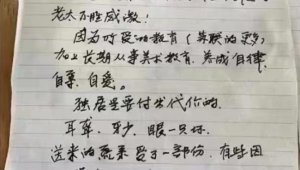 老木不胜感激！
因为所受的教育（苏联的更多）
加上长期从事美术教育，养成自律
自尊、自爱。
独居是要付出代价的，
耳聋、牙少、眼一只坏
送来的蔬果 一部份，有些因